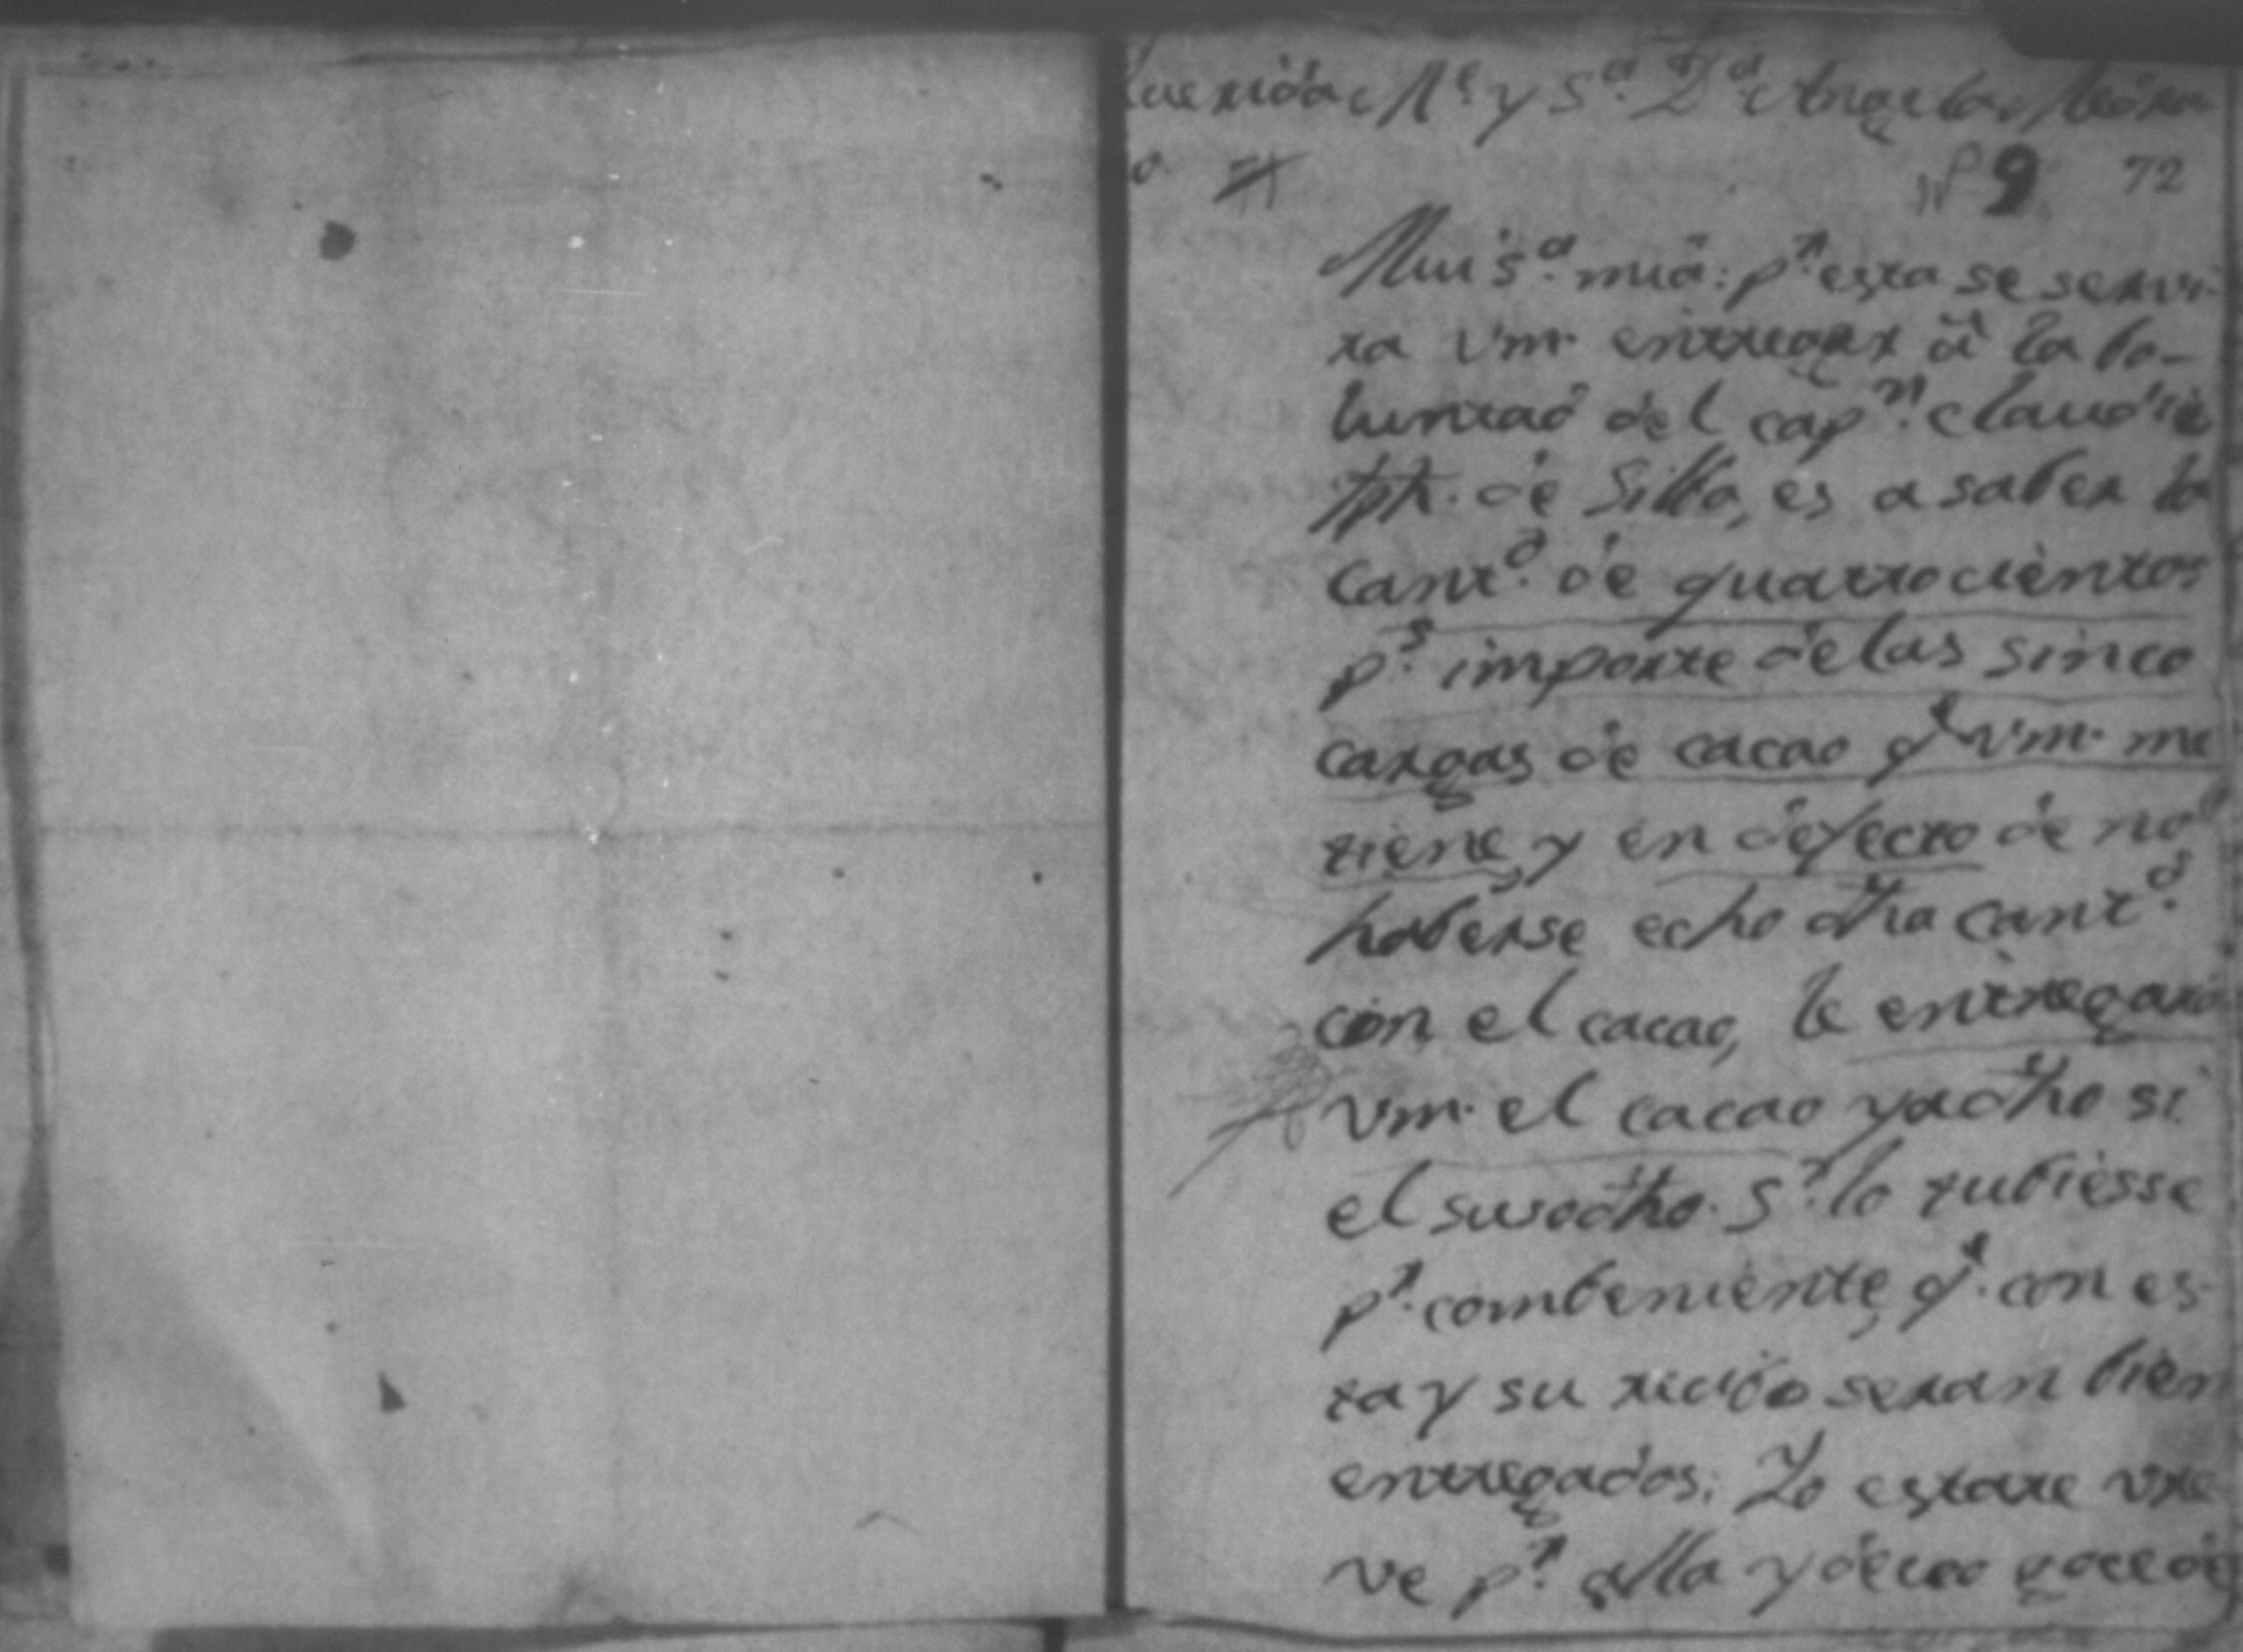 querida M.e y S.a D.a Angela Medina
o.
nº 9 72
Mui s.a mia: p.r esta se servi-
ra Vm. entregar a la bo-
luntad del cap.n Claudio
Jph. de Silba, es a saber la
cant.d de quatrocientos
p.s importe de las sinco
cargas de cacao q.e Vm. me
tiene, y en defecto de no
haberse echo dha cant.d
con el cacao, le entregara
Vm. el cacao ya dho si
el susodho. S.r lo tubiesse
p.r combeniente, q.e con es-
ta y su recibo seran bien
entregados. Yo estare bre-
ve p.r alla y deceo goce de